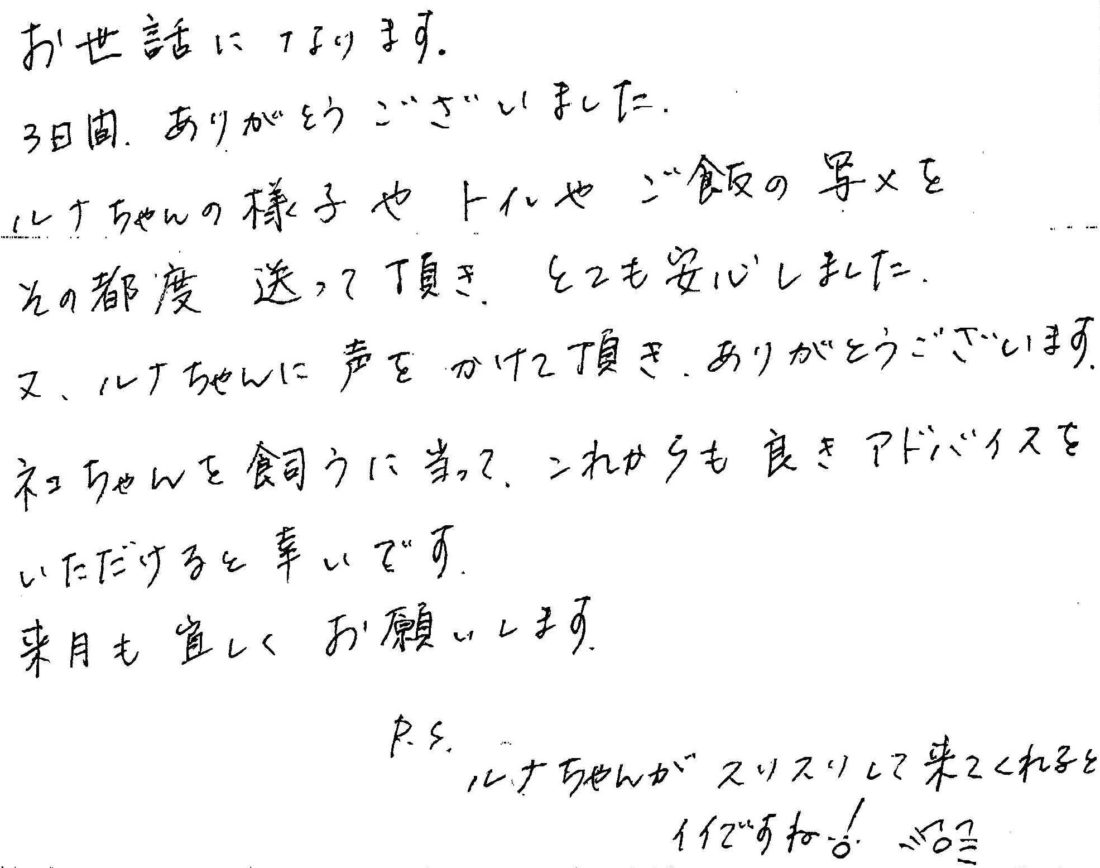 お世話になります。
3日間、ありがとうございました。
ルナちゃんの様子や トイレや ご飯の 写メを
その都度 送って頂き、とても安心しました。
又、ルナちゃんに 声を かけて頂き、ありがとうございます。
ネコちゃんを飼うに当って、これからも 良き アドバイスを
いただけると幸いです。
来月も 宜しく お願いします。
P.S.
ルナちゃんが スリスリして来てくれると
イイですね!